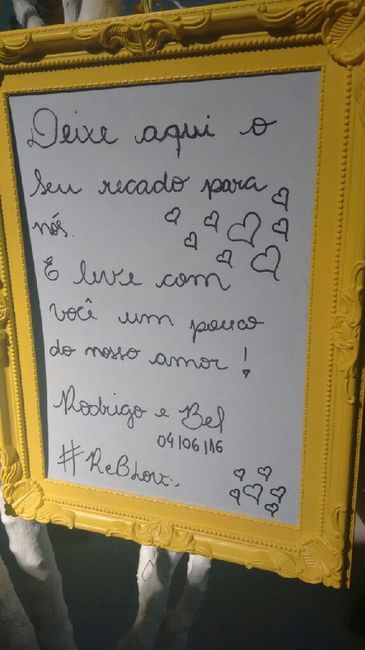 Deixe aqui o
seu recado para
nós.
E leve com
você um pouco
do nosso amor!
Rodrigo e Bel
04/06/16
#ReBLove